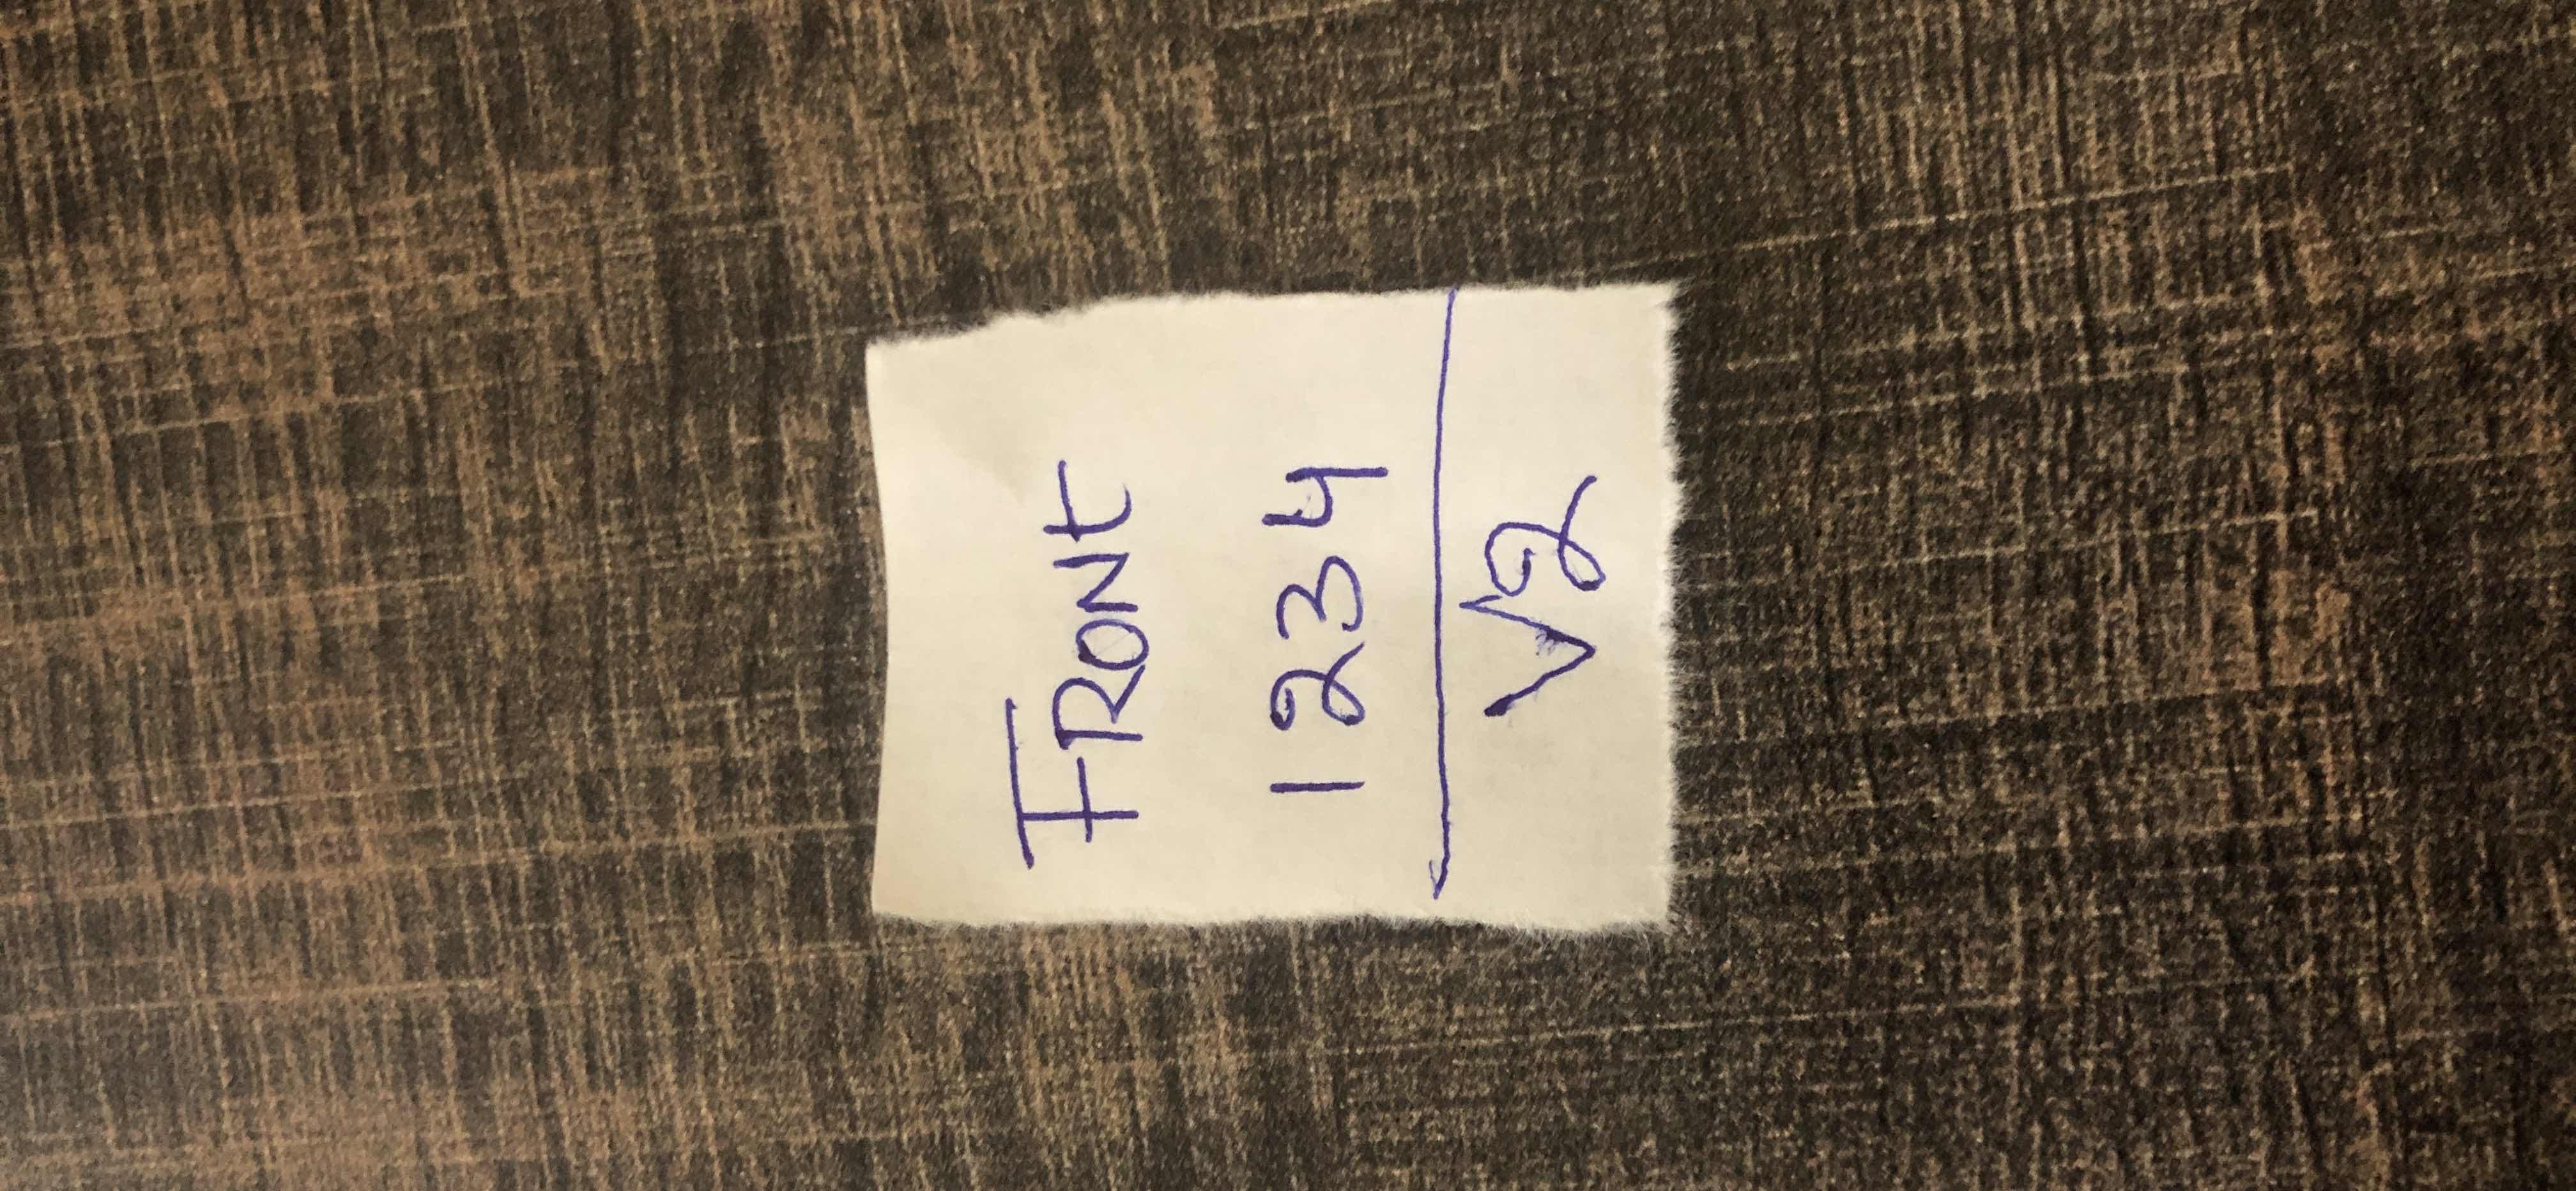 FRONt
1234
V2